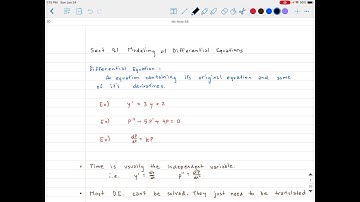 Sect 9.1 Modeling w/ Differential Equations
Differential Equation =
An equation containing its original equation and some
of it's derivatives.
Ex) y' = 3y + 2
Ex) P'' - 5P' + 4P = 0
Ex) dP/dt = kP
• Time is usually the independent variable.
i.e. y' = dy/dt P' = dP/dt
• Most D.E. can't be solved. They just need to be translated